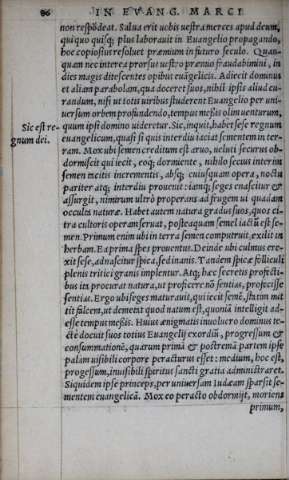 86 IN EVANG. MARCI
non respõdeat. Salua erit uobis uestra merces apud deum,
qui quo quisq; plus laborauit in Euangelio propagando,
hoc copiosius resoluet præmium in futuro seculo. Quan-
quam nec interea prorsus uestro præmio fraudabimini, in
dies magis ditescentes opibus euãgelicis. Adiecit dominus
et aliam parabolam, qua doceret suos, nihil ipsis aliud cu-
randum, nisi ut totis uiribus studerent Euangelio per uni-
uersum orbem profundendo, tempus meßis olim uenturum,
Sic est re- quum ipsi domino uideretur. Sic, inquit, habet sese regnum
gnum dei. euangelicum, quasi si quis interdiu iaciat sementem in ter-
ram. Mox ubi semen creditum est aruo, ueluti securus ob-
dormiscit qui iecit, eoq; dormiente, nihilo secius interim
semen uicitis incrementis, absq; cuiusquam opera, noctu
pariter atq; interdiu prouenit: iamq; seges enascitur &
assurgit, nimirum ultrò properans ad frugem ui quadam
occulta naturæ. Habet autem natura gradus suos, quos ci-
tra cultoris operam seruat, posteaquam semel iacta est se-
men. Primum enim ubi in terra semen computruit, exilit in
herbam. Ea prima spes prouentus. Deinde ubi culmus ere-
xit sese, adnascitur spica, sed inanis. Tandem spicæ folliculi
plenis tritici granis implentur. Atq; hæc secretis profecti-
bus ita procurat natura, ut proficere nõ sentias, profecisse
sentias. Ergo ubi seges maturauit, qui iecit semẽ, statim mit
tit falcem, ut demetat quod natum est, quoniã intelligit ad-
esse tempus meßis. Huius ænigmatis inuolucro dominus te-
ctè docuit suos totius Euangelij exordiũ, progressum &
consummationẽ, quarum primã & postremã partem ipse
palam uisibili corpore peracturus esset: medium, hoc est,
progessum, inuisibili spiritus sancti gratia administraret.
Siquidem ipse princeps, per uniuersam Iudæam sparsit se-
mentem euangelicã. Mox eo peracto obdormijt, moriens
primum,